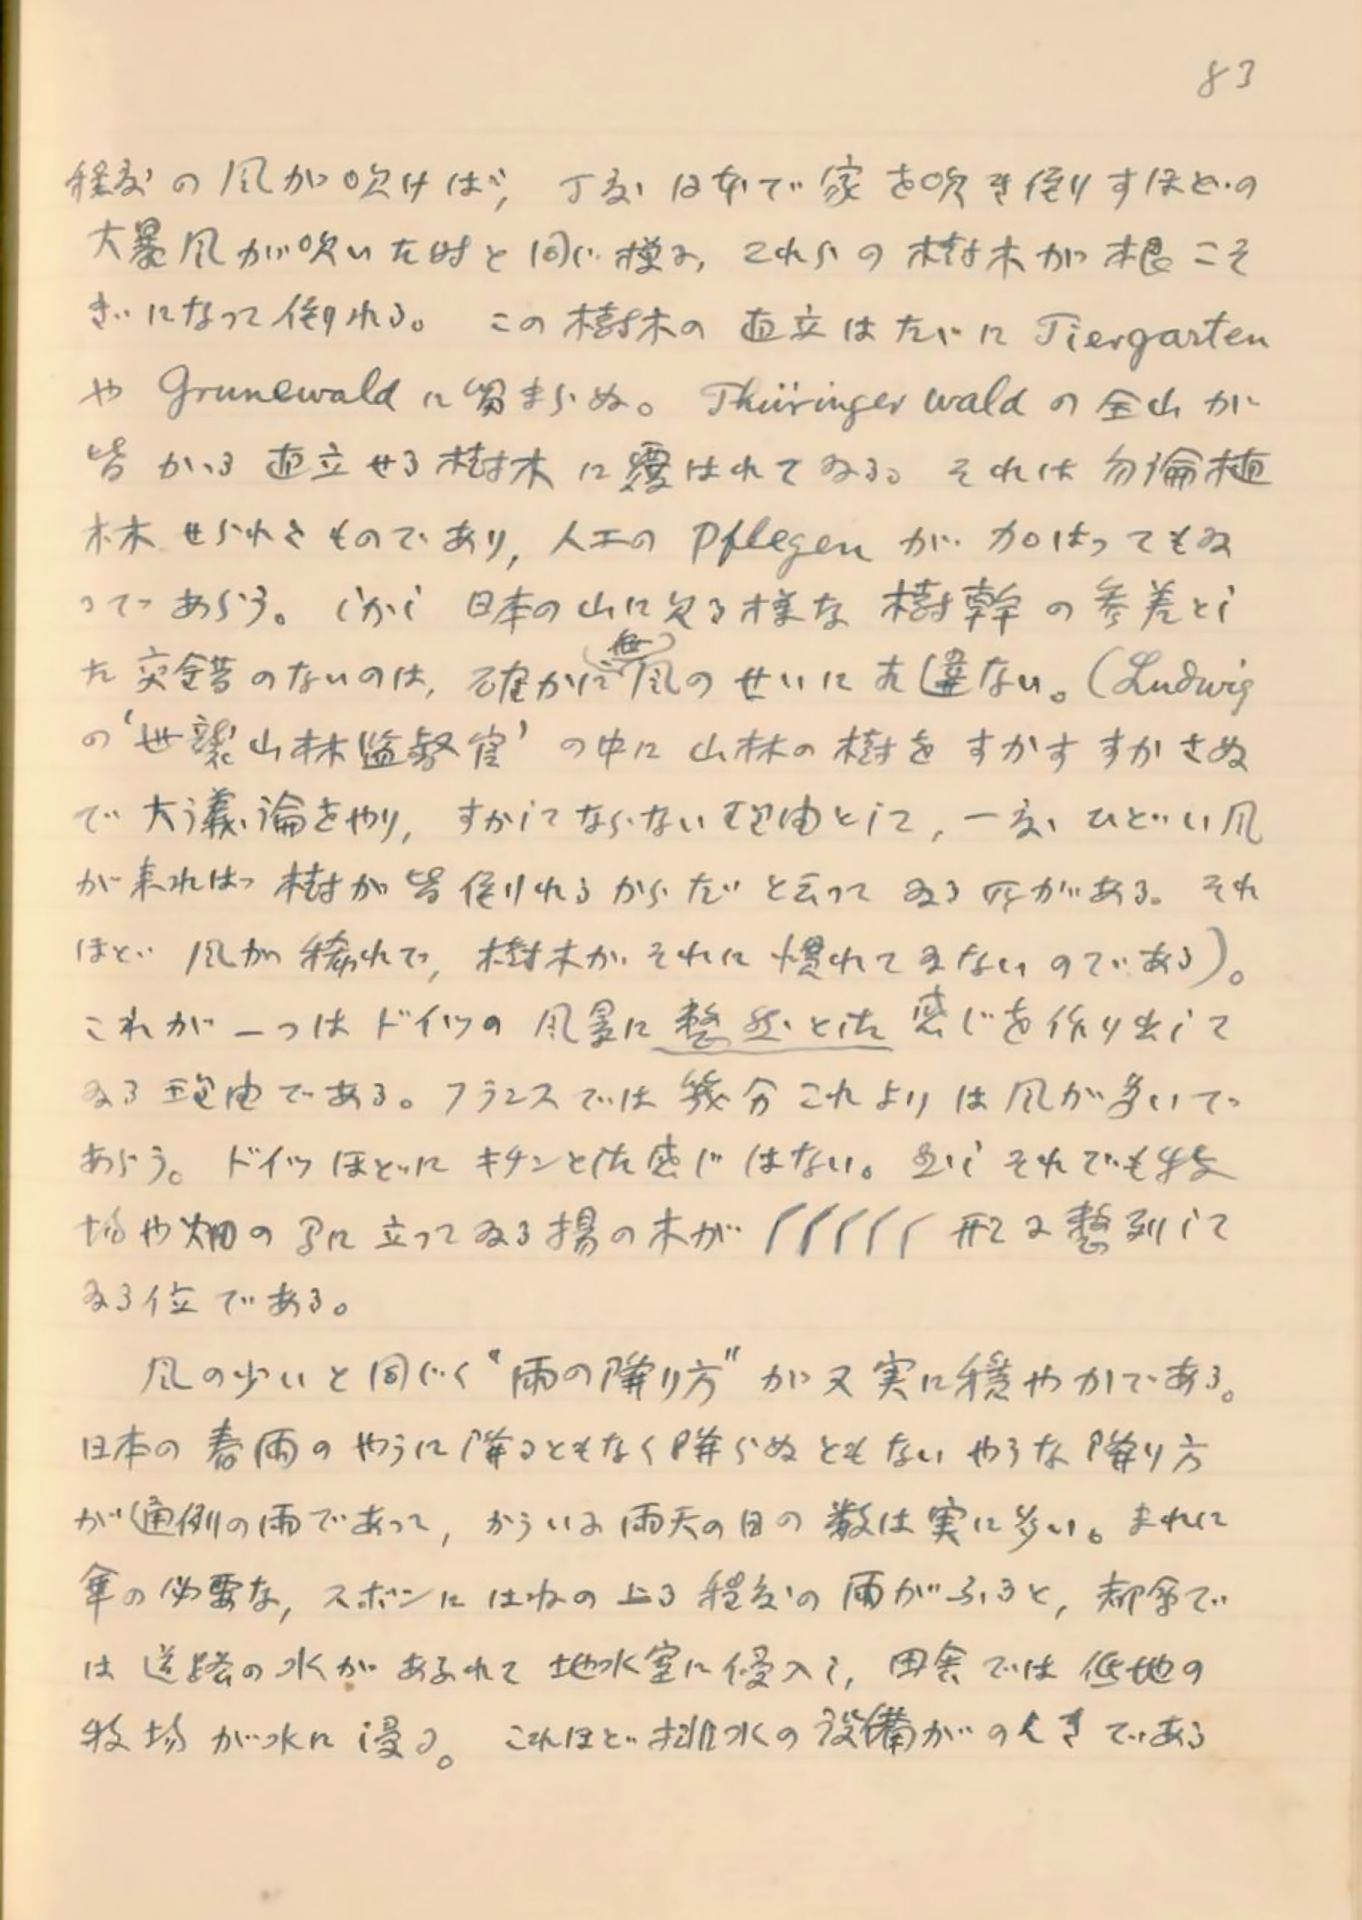 83
程度の風が吹けば、丁度日本で家を吹き倒りすほどの
大暴風が吹いた時と同じ様に、これらの樹木が根こそ
ぎになって倒れる。この樹木の直立はただに Tiergarten
や Grunewald に留まらぬ。Thüringer wald の全山が
皆かゝる直立せる樹木に覆はれてゐる。それは勿論植
林せられたものであり、人工の Pflegen が加はってもゐ
るであらう。しかし日本の山に見る様な樹幹の参差とし
た交錯のないのは、確かに無風のせいに相違ない。(Ludwig
の‘世襲山林監督官’の中に山林の樹をすかすすかさぬ
で大議論をやり、すかしてならない理由として、一度ひどい風
が来れば樹が皆倒れるからだと云ってゐる所がある。それ
ほど風が稀れで、樹木がそれに慣れてゐないのである)。
これが一つはドイツの風景に整然とした感じを作り出して
ゐる理由である。フランスでは幾分これよりは風が多いで
あらう。ドイツほどにキチンとした感じはない。併しそれでも牧
場や畑の間に立ってゐる楊の木が 形に整列して
ゐる位である。
風の少いと同じく“雨の降り方”が又実に穏やかである。
日本の春雨のやうに降るともなく降らぬともないやうな降り方
が通例の雨であって、かういふ雨天の日の数は実に多い。まれに
傘の必要な、スボンにはねの上る程度の雨がふると、都会で
は道路の水があふれて地水室に侵入し、田舎では低地の
牧場が水に浸る。これほど排水の設備がのんきである